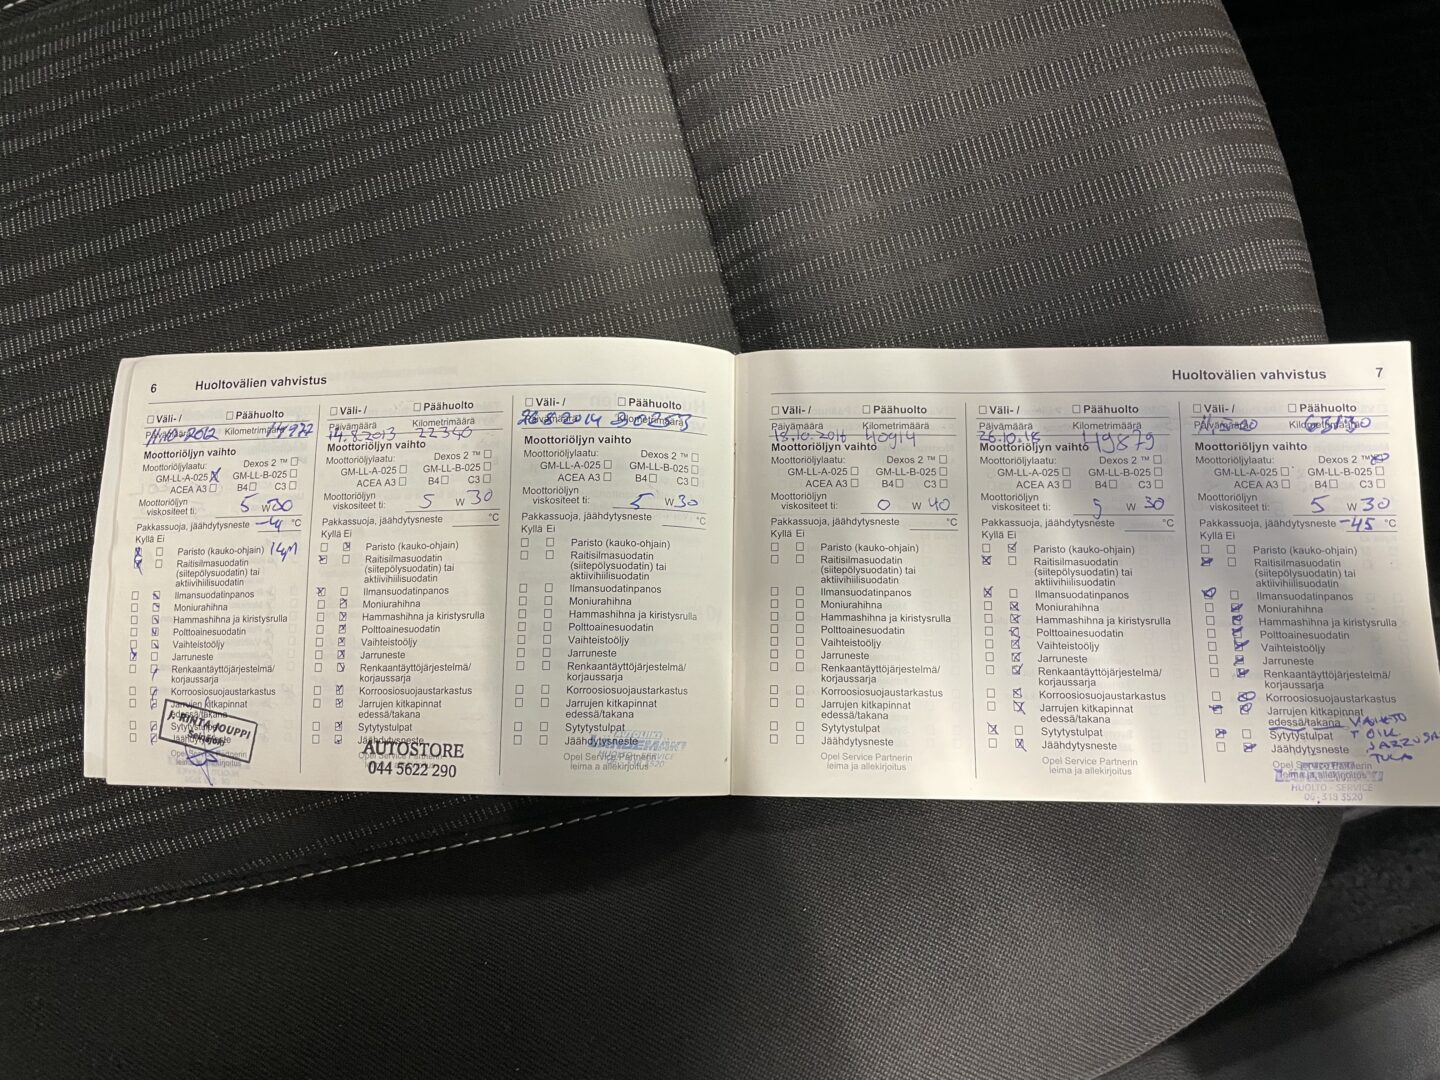 6 Huoltovälien vahvistus
Väli- / Päähuolto
Päivämäärä Kilometrimäärä
11.10.2012
Moottoriöljyn vaihto
Moottoriöljylaatu: Dexos 2 ™
GM-LL-A-025 X GM-LL-B-025
ACEA A3 B4 C3
Moottoriöljyn
viskositeetti: 5 W
Pakkassuoja, jäähdytysneste °C
Kyllä Ei
Paristo (kauko-ohjain)
Raitisilmasuodatin
(siitepölysuodatin) tai
aktiivihiilisuodatin
Ilmansuodatinpanos
Moniurahihna
Hammashihna ja kiristysrulla
Polttoainesuodatin
Vaihteistoöljy
Jarruneste
Renkaantäyttöjärjestelmä/
korjaussarja
Korroosiosuojaustarkastus
Jarrujen kitkapinnat
edessä/takana
Sytytystulpat
Jäähdytysneste
J. RINTA-JOUPPI
Seinäjoki
Väli- / Päähuolto
Päivämäärä Kilometrimäärä
14.8.2013 22340
Moottoriöljyn vaihto
Moottoriöljylaatu: Dexos 2 ™
GM-LL-A-025 GM-LL-B-025
ACEA A3 B4 C3
Moottoriöljyn
viskositeetti: 5 W 30
Pakkassuoja, jäähdytysneste °C
Kyllä Ei
Paristo (kauko-ohjain)
Raitisilmasuodatin
(siitepölysuodatin) tai
aktiivihiilisuodatin
Ilmansuodatinpanos
Moniurahihna
Hammashihna ja kiristysrulla
Polttoainesuodatin
Vaihteistoöljy
Jarruneste
Renkaantäyttöjärjestelmä/
korjaussarja
Korroosiosuojaustarkastus
Jarrujen kitkapinnat
edessä/takana
Sytytystulpat
Jäähdytysneste
AUTOSTORE
044 5622 290
Väli- / Päähuolto
Päivämäärä Kilometrimäärä
26.8.2014
Moottoriöljyn vaihto
Moottoriöljylaatu: Dexos 2 ™
GM-LL-A-025 GM-LL-B-025
ACEA A3 B4 C3
Moottoriöljyn
viskositeetti: 5 W 30
Pakkassuoja, jäähdytysneste °C
Kyllä Ei
Paristo (kauko-ohjain)
Raitisilmasuodatin
(siitepölysuodatin) tai
aktiivihiilisuodatin
Ilmansuodatinpanos
Moniurahihna
Hammashihna ja kiristysrulla
Polttoainesuodatin
Vaihteistoöljy
Jarruneste
Renkaantäyttöjärjestelmä/
korjaussarja
Korroosiosuojaustarkastus
Jarrujen kitkapinnat
edessä/takana
Sytytystulpat
Jäähdytysneste
Opel Service Partnerin
leima ja allekirjoitus
Huoltovälien vahvistus 7
Väli- / Päähuolto
Päivämäärä Kilometrimäärä
13.10.2016 40914
Moottoriöljyn vaihto
Moottoriöljylaatu: Dexos 2 ™
GM-LL-A-025 GM-LL-B-025
ACEA A3 B4 C3
Moottoriöljyn
viskositeetti: 0 W 40
Pakkassuoja, jäähdytysneste °C
Kyllä Ei
Paristo (kauko-ohjain)
Raitisilmasuodatin
(siitepölysuodatin) tai
aktiivihiilisuodatin
Ilmansuodatinpanos
Moniurahihna
Hammashihna ja kiristysrulla
Polttoainesuodatin
Vaihteistoöljy
Jarruneste
Renkaantäyttöjärjestelmä/
korjaussarja
Korroosiosuojaustarkastus
Jarrujen kitkapinnat
edessä/takana
Sytytystulpat
Jäähdytysneste
Opel Service Partnerin
leima ja allekirjoitus
Väli- / Päähuolto
Päivämäärä Kilometrimäärä
26.10.18 49879
Moottoriöljyn vaihto
Moottoriöljylaatu: Dexos 2 ™
GM-LL-A-025 GM-LL-B-025
ACEA A3 B4 C3
Moottoriöljyn
viskositeetti: 5 W 30
Pakkassuoja, jäähdytysneste °C
Kyllä Ei
Paristo (kauko-ohjain)
Raitisilmasuodatin
(siitepölysuodatin) tai
aktiivihiilisuodatin
Ilmansuodatinpanos
Moniurahihna
Hammashihna ja kiristysrulla
Polttoainesuodatin
Vaihteistoöljy
Jarruneste
Renkaantäyttöjärjestelmä/
korjaussarja
Korroosiosuojaustarkastus
Jarrujen kitkapinnat
edessä/takana
Sytytystulpat
Jäähdytysneste
Opel Service Partnerin
leima ja allekirjoitus
Väli- / Päähuolto
Päivämäärä Kilometrimäärä
Moottoriöljyn vaihto
Moottoriöljylaatu: Dexos 2 ™
GM-LL-A-025 GM-LL-B-025
ACEA A3 B4 C3
Moottoriöljyn
viskositeetti: 5 W 30
Pakkassuoja, jäähdytysneste -45 °C
Kyllä Ei
Paristo (kauko-ohjain)
Raitisilmasuodatin
(siitepölysuodatin) tai
aktiivihiilisuodatin
Ilmansuodatinpanos
Moniurahihna
Hammashihna ja kiristysrulla
Polttoainesuodatin
Vaihteistoöljy
Jarruneste
Renkaantäyttöjärjestelmä/
korjaussarja
Korroosiosuojaustarkastus
Jarrujen kitkapinnat
edessä/takana
Sytytystulpat
Jäähdytysneste
Opel Service Partnerin
leima ja allekirjoitus
HUOLTO - SERVICE
06-319 3520